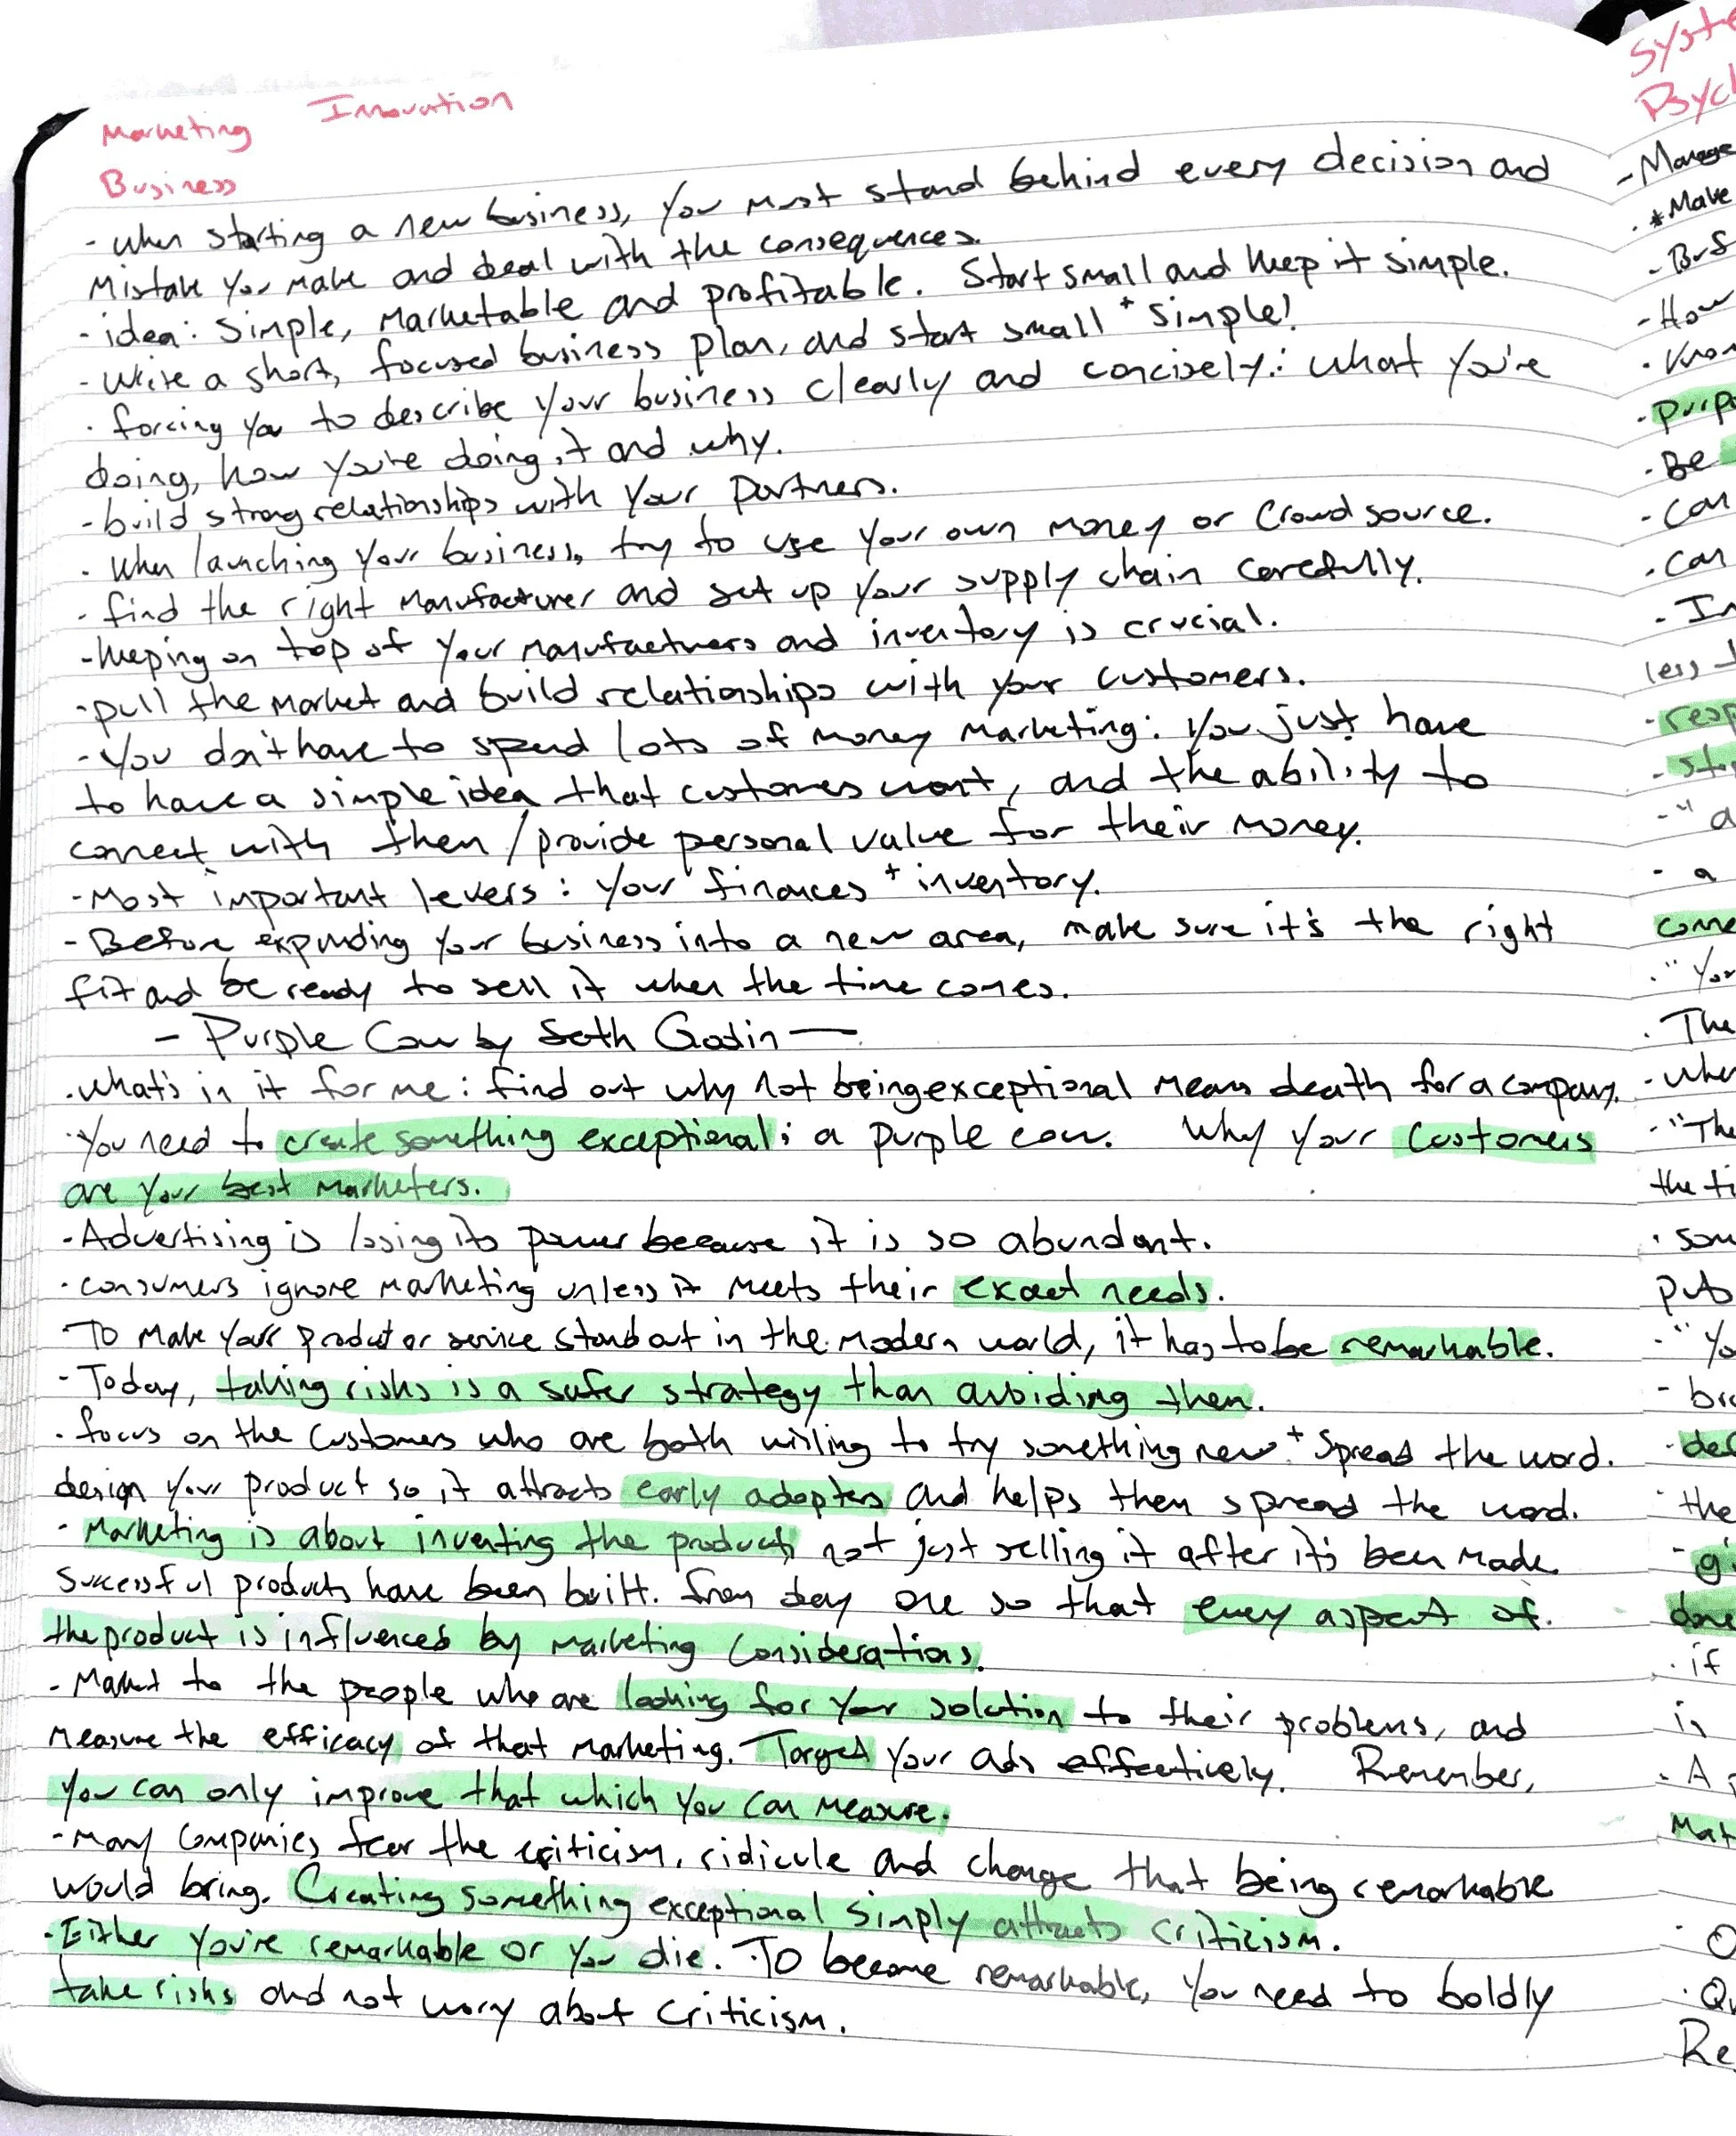 Marketing Innovation
Business
- when starting a new business, you must stand behind every decision and
mistake you make and deal with the consequences.
- idea: simple, marketable and profitable. Start small and keep it simple.
- write a short, focused business plan, and start small + simple!
· forcing you to describe your business clearly and concisely: what you're
doing, how you're doing it and why.
- build strong relationships with your partners.
· when launching your business, try to use your own money or crowdsource.
- find the right manufacturer and set up your supply chain carefully.
- keeping on top of your manufacturers and inventory is crucial.
- pull the market and build relationships with your customers.
- you don't have to spend lots of money marketing: you just have
to have a simple idea that customers want, and the ability to
connect with them / provide personal value for their money.
- Most important levers: your finances + inventory.
- Before expanding your business into a new area, make sure it's the right
fit and be ready to sell it when the time comes.
- Purple Cow by Seth Godin —
· what's in it for me: find out why not being exceptional means death for a company.
· You need to create something exceptional; a purple cow. Why your customers
are your best marketers.
- Advertising is losing its power because it is so abundant.
· consumers ignore marketing unless it meets their exact needs.
To make your product or service stand out in the modern world, it has to be remarkable.
- Today, taking risks is a safer strategy than avoiding them.
· focus on the customers who are both willing to try something new + spread the word.
design your product so it attracts early adopters and helps them spread the word.
- Marketing is about inventing the product, not just selling it after it's been made
successful products have been built from day one so that every aspect of
the product is influenced by marketing considerations.
- Market to the people who are looking for your solution to their problems, and
measure the efficacy of that marketing. Target your ads effectively. Remember,
you can only improve that which you can measure.
- Many companies fear the criticism, ridicule and change that being remarkable
would bring. Creating something exceptional simply attracts criticism.
· Either you're remarkable or you die. · To become remarkable, you need to boldly
take risks and not worry about criticism.
- Manage
· *Make
- How
- Be
- Can
· Can
less
come
· The
- "The
the
put
the
done
· if
is
- A